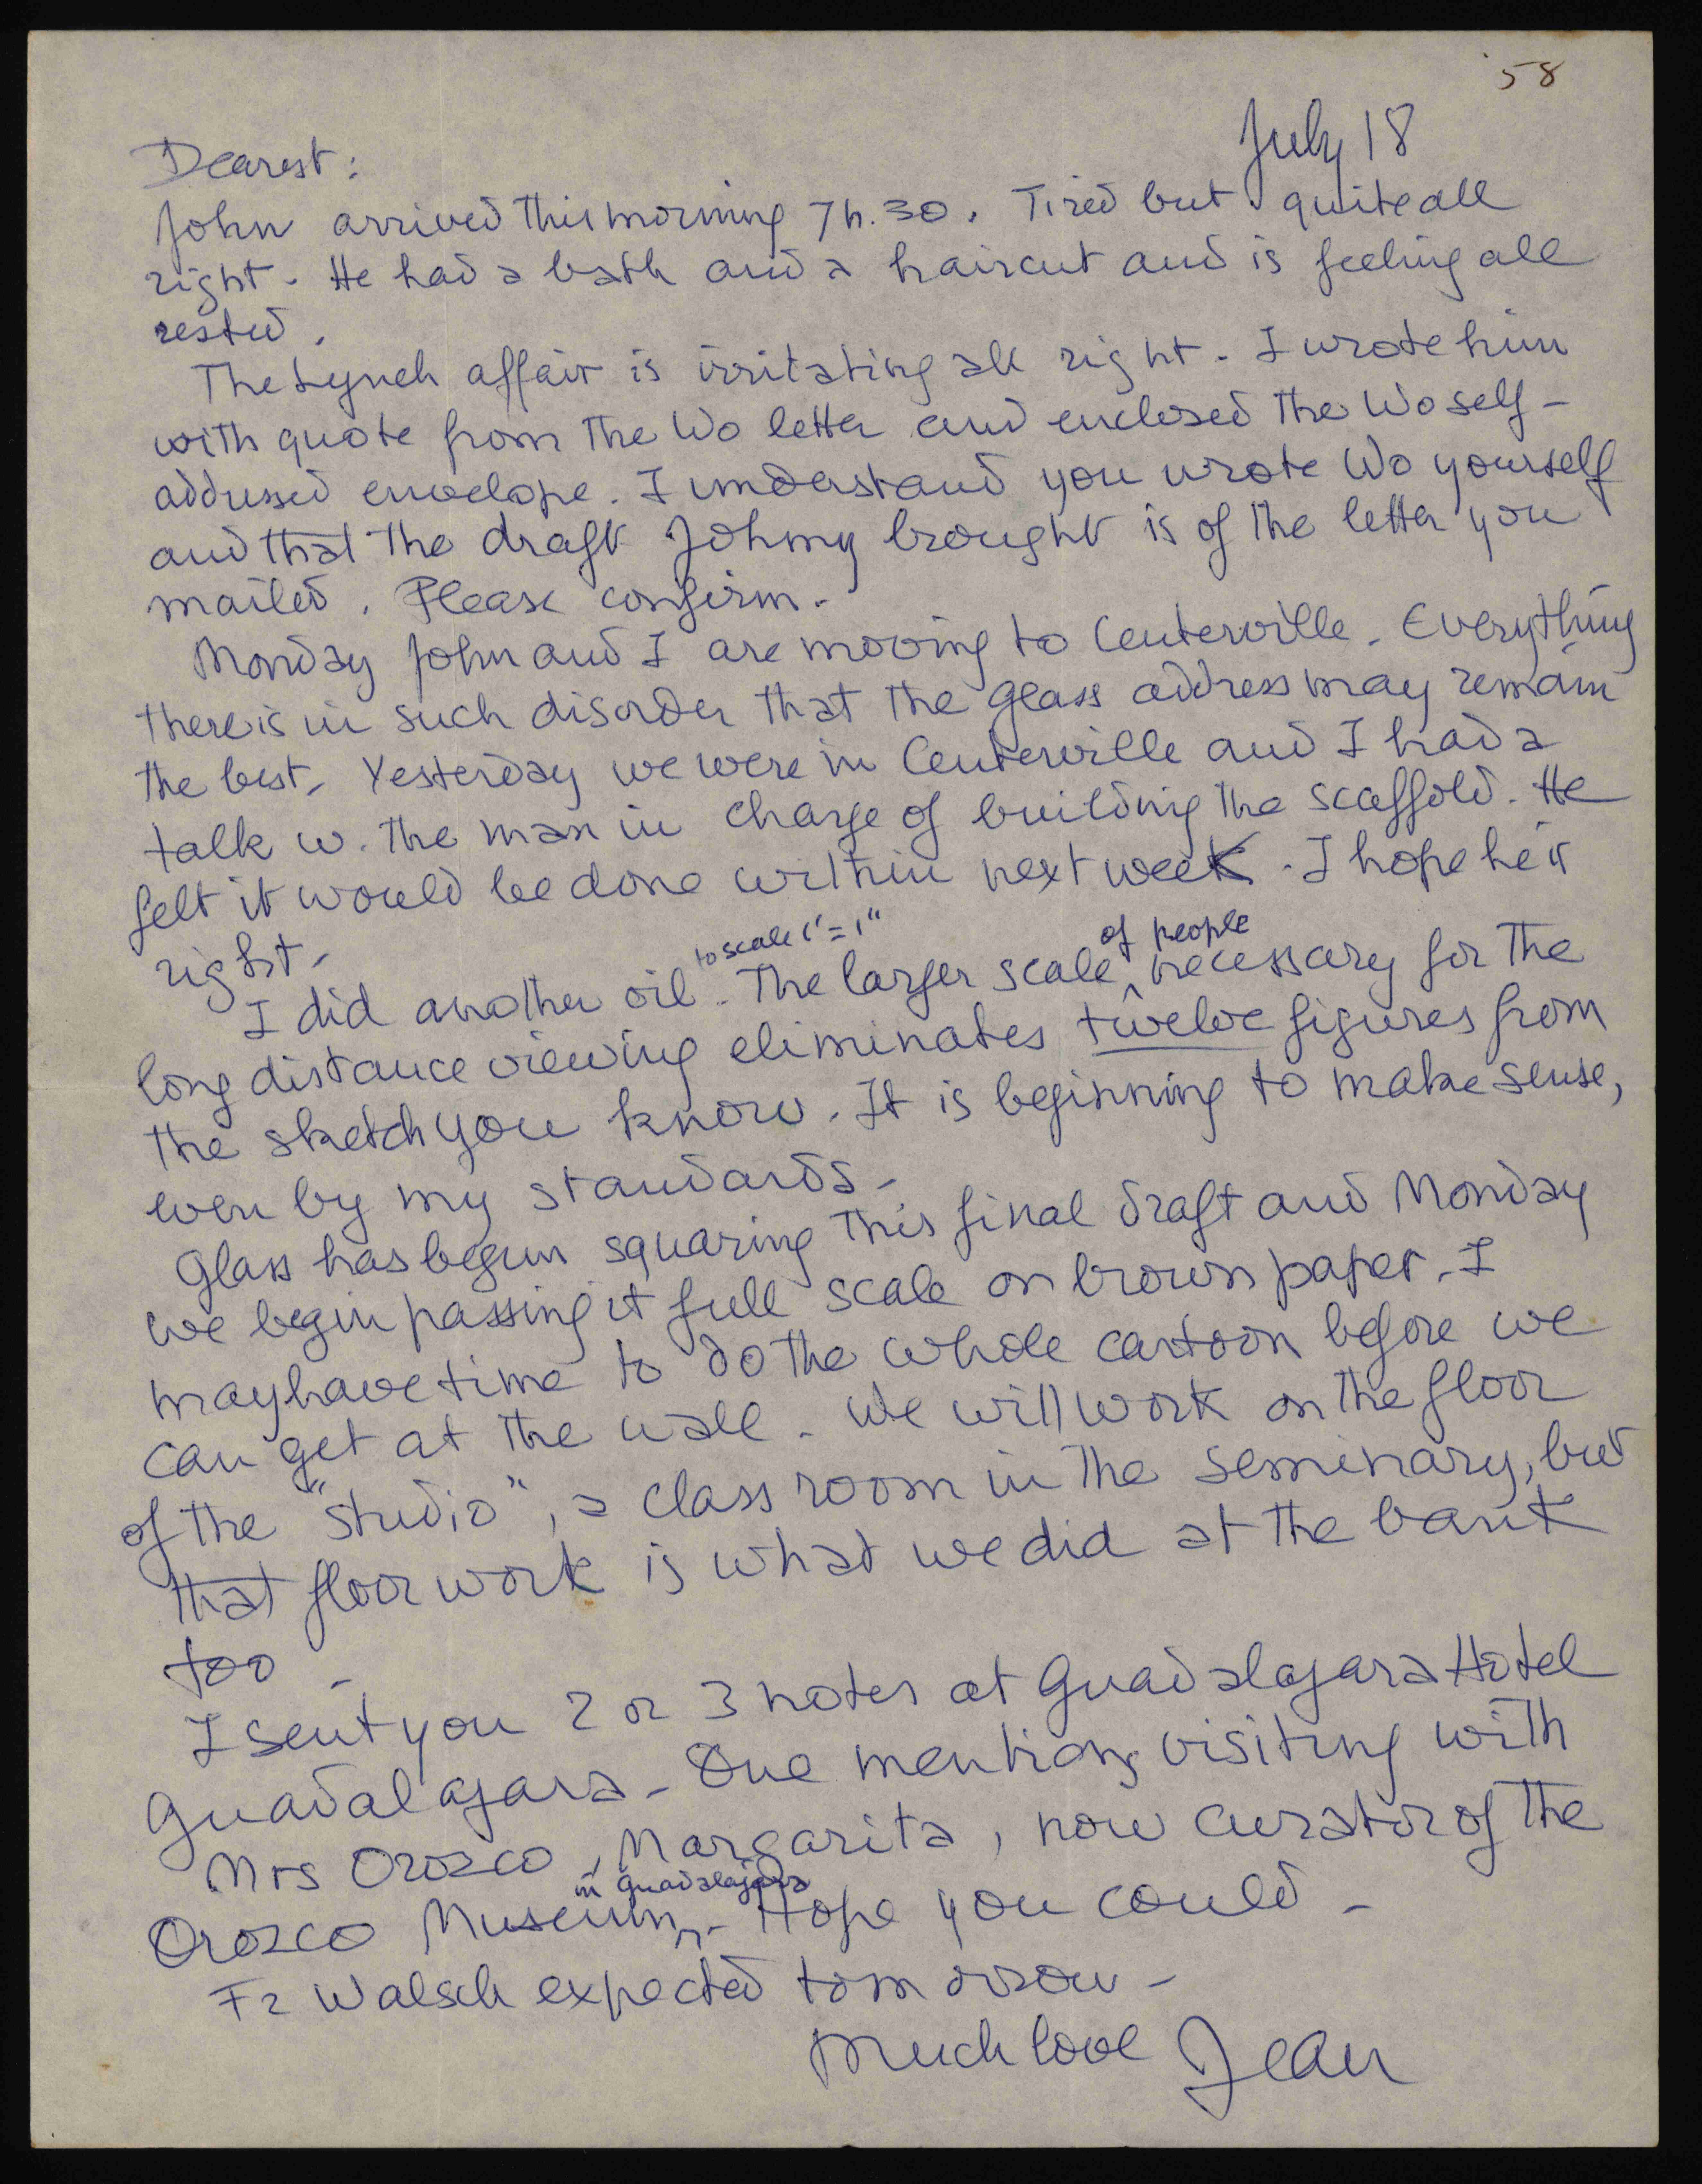 '58
July 18
Dearest:
John arrived this morning 7h.30. Tired but quite all
right. He had a bath and a haircut and is feeling all
rested.
The Lynch affair is irritating all right. I wrote him
with quote from the Wo letter and enclosed the Wo self-
addressed envelope. I understand you wrote Wo yourself
and that the draft Johny brought is of the letter you
mailed. Please confirm.
Monday John and I are moving to Centerville. Everything
there is in such disorder that the Glass address may remain
the best. Yesterday we were in Centerville and I had a
talk w. the man in charge of building the scaffold. He
felt it would be done within next week. I hope he is
right.
to scale 1' = 1" of people
I did another oil. The larger scale necessary for the
long distance viewing eliminates twelve figures from
the sketch you know. It is beginning to make sense,
even by my standards.
Glass has begun squaring this final draft and Monday
we begin passing it full scale on brown paper. I
may have time to do the whole cartoon before we
can get at the wall. We will work on the floor
of the "studio", a class room in the seminary, but
that floor work is what we did at the bank
too -
I sent you 2 or 3 notes at Guadalajara Hotel
Guadalajara - One mentions visiting with
Mrs Orozco, Margarita, now curator of the
in Guadalajara
Orozco Museum. Hope you could -
Fr Walsch expected tomorrow -
Much love Jean